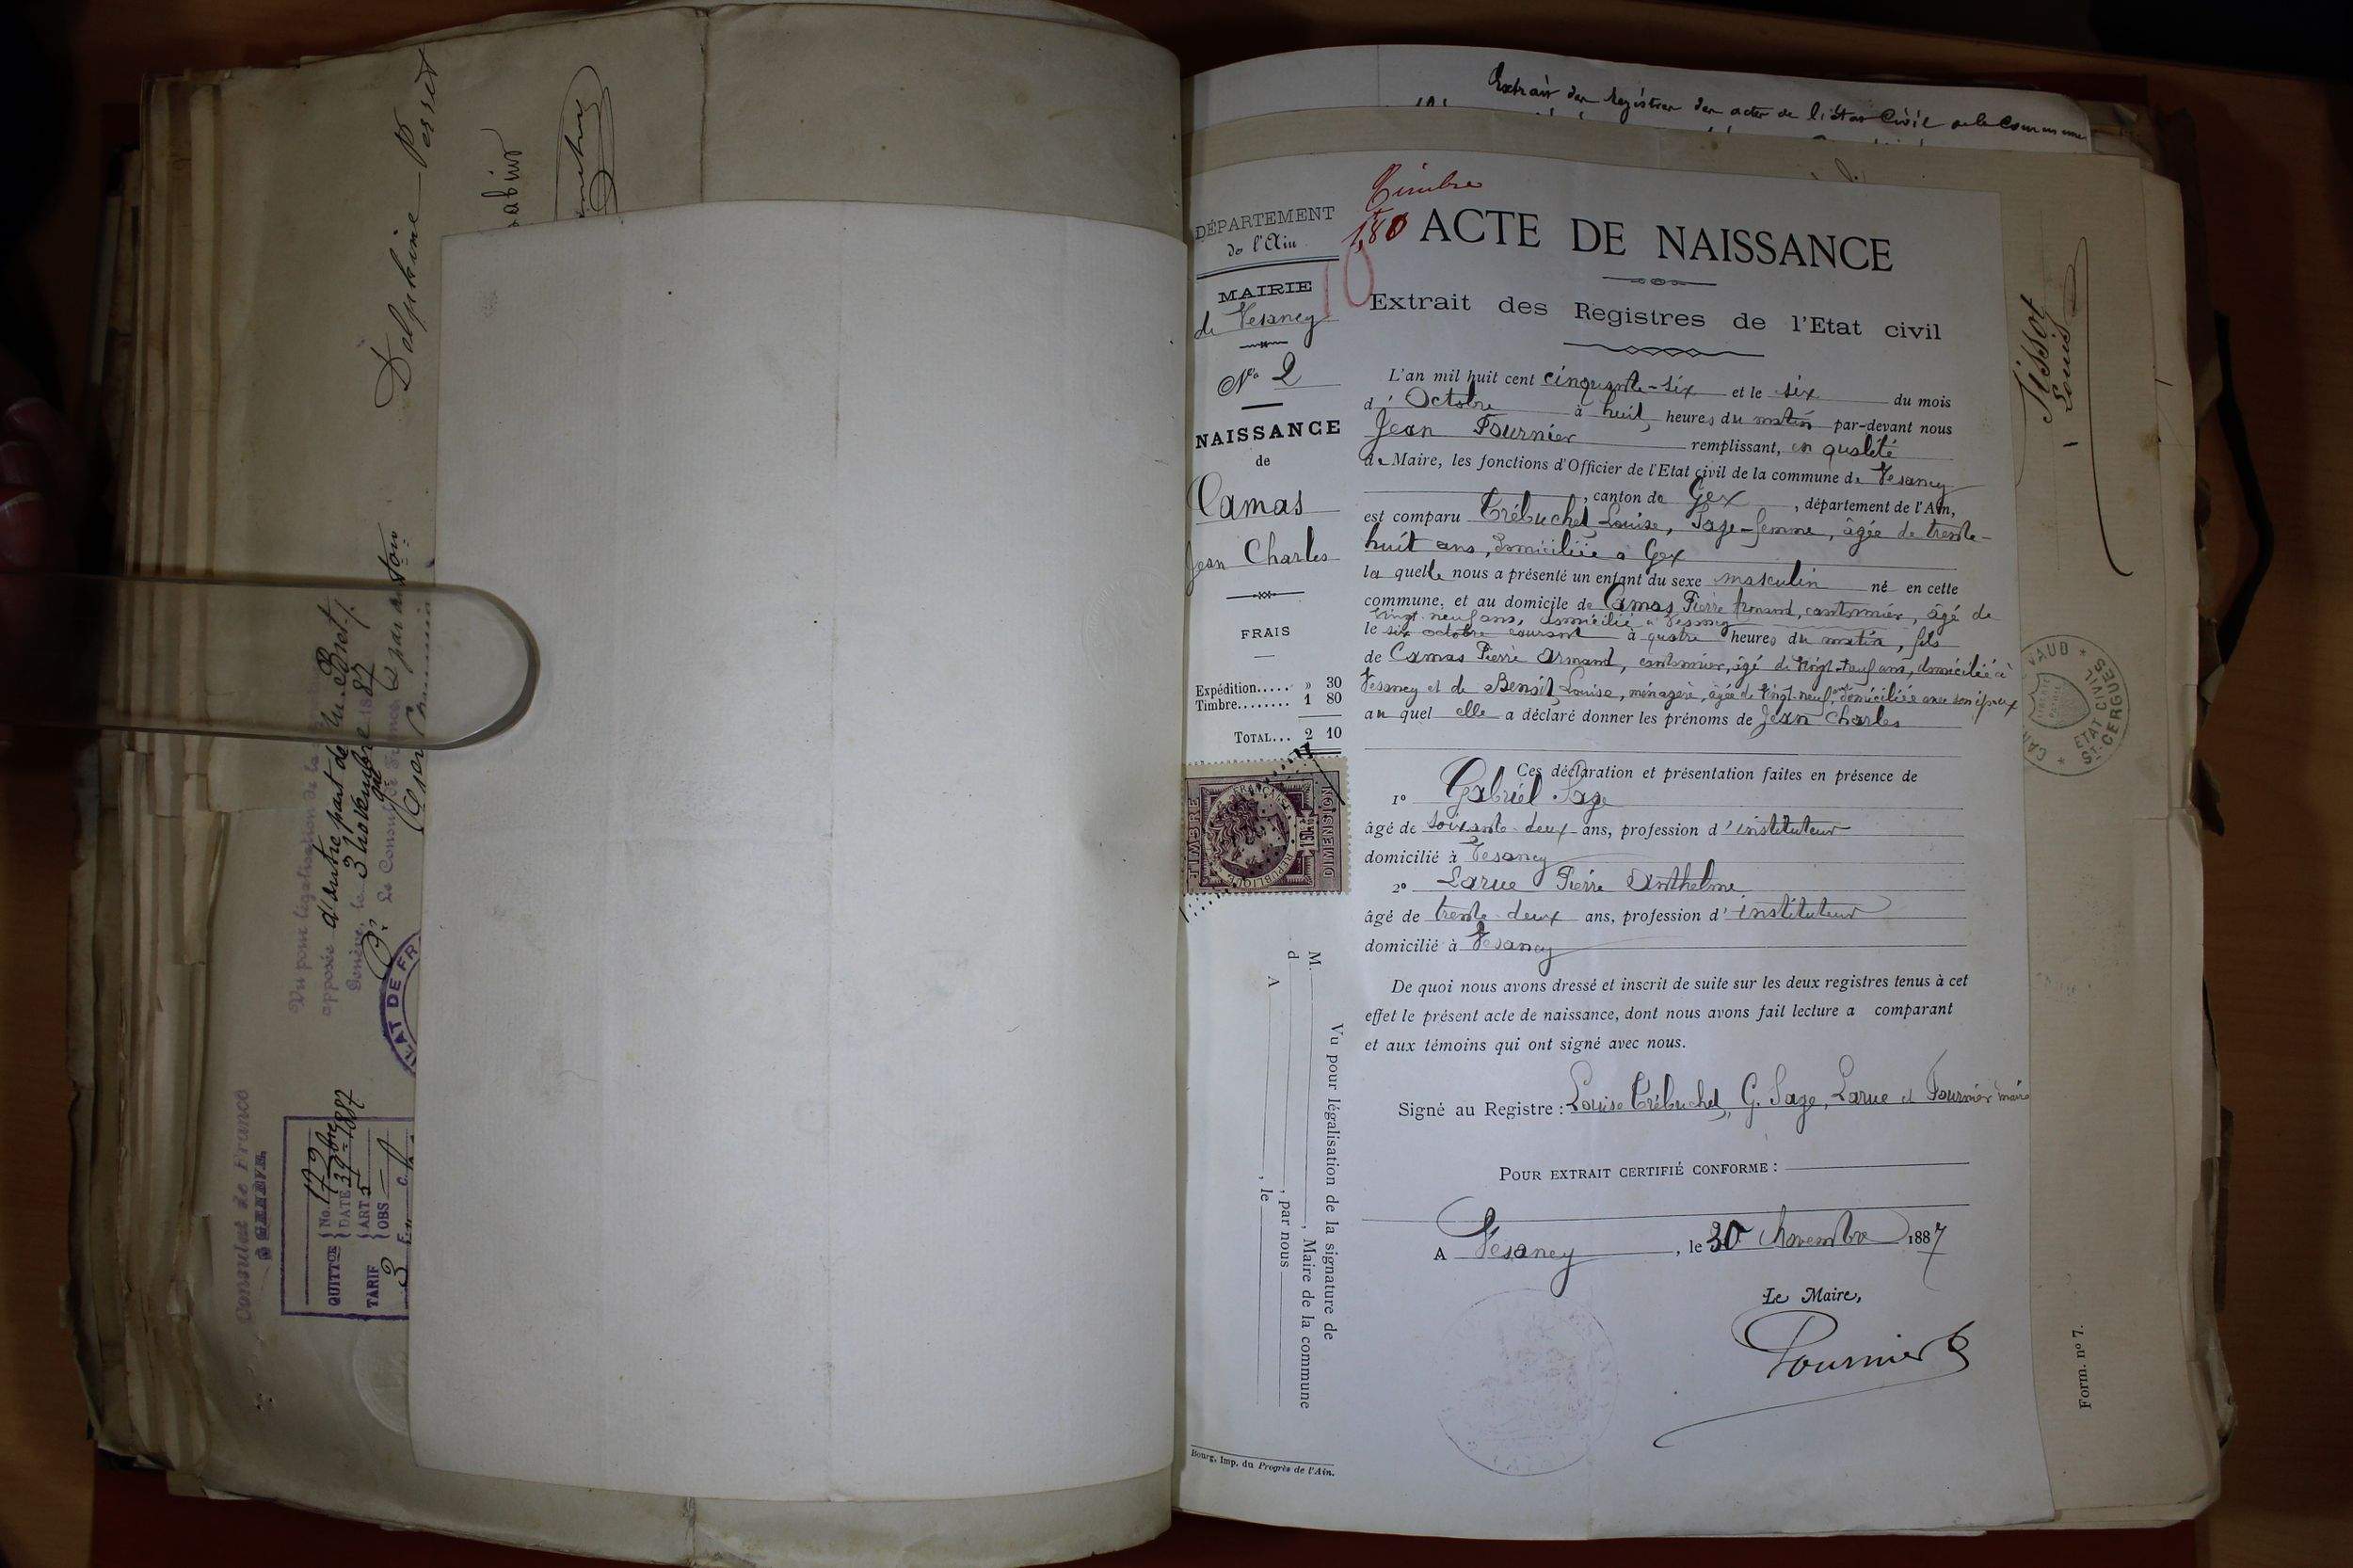 Delphine Perret
Vu pour légalisation de la
apposée d'autre part de Mr. Bret
Genève, le 3 novembre 1887
Le Consul de France
Consulat de France
à GENÈVE
QUITTCE No. 179
DATE 1887
TARIF ART 5
OBS
3 F. C.
AT DE FR
Extrait des registres des actes de l'état civil de la Commune
Timbre
1,80
10
DÉPARTEMENT
de l'Ain
MAIRIE
de Vesancy
No 2
NAISSANCE
de
Camas
Jean Charles
FRAIS
Expédition..... » 30
Timbre........ 1 80
TOTAL... 2 10
TIMBRE
DIMENSION
REPUBLIQUE FRANÇAISE
Vu pour légalisation de la signature de
M. , Maire de la commune
d , par nous
A , le
Bourg, Imp. du Progrès de l'Ain.
ACTE DE NAISSANCE
Extrait des Registres de l'Etat civil
L'an mil huit cent cinquante-six et le six du mois
d' Octobre à huit heures du matin par-devant nous
Jean Fournier remplissant, en qualité
de Maire, les fonctions d'Officier de l'Etat civil de la commune de Vesancy
, canton de Gex , département de l'Ain,
est comparu Trébuchet Louise, Sage-femme, âgée de trente-
huit ans, domiciliée à Gex
la quelle nous a présenté un enfant du sexe masculin né en cette
commune, et au domicile de Camas Pierre Armand, cantonnier, âgé de
vingt neuf ans, domicilié à Vesancy
le six octobre courant à quatre heures du matin, fils
de Camas Pierre Armand, cantonnier, âgé de vingt-neuf ans, domicilié à
Vesancy et de Benoit Louise, ménagère, âgée de vingt-neuf ans domiciliée avec son époux
au quel elle a déclaré donner les prénoms de Jean Charles
Ces déclaration et présentation faites en présence de
1° Gabriel Sage
âgé de soixante-deux ans, profession d'instituteur
domicilié à Vesancy
2° Larue Pierre Anthelme
âgé de trente-deux ans, profession d'instituteur
domicilié à Vesancy
De quoi nous avons dressé et inscrit de suite sur les deux registres tenus à cet
effet le présent acte de naissance, dont nous avons fait lecture a comparant
et aux témoins qui ont signé avec nous.
Signé au Registre : Louise Trébuchet, G. Sage, Larue et Fournier maire
POUR EXTRAIT CERTIFIÉ CONFORME :
A Vesancy , le 30 Novembre 1887
Le Maire,
Fournier
Tissot
Louis
VAUD
ETAT CIVIL
ST CERGUES
Form. no 7.